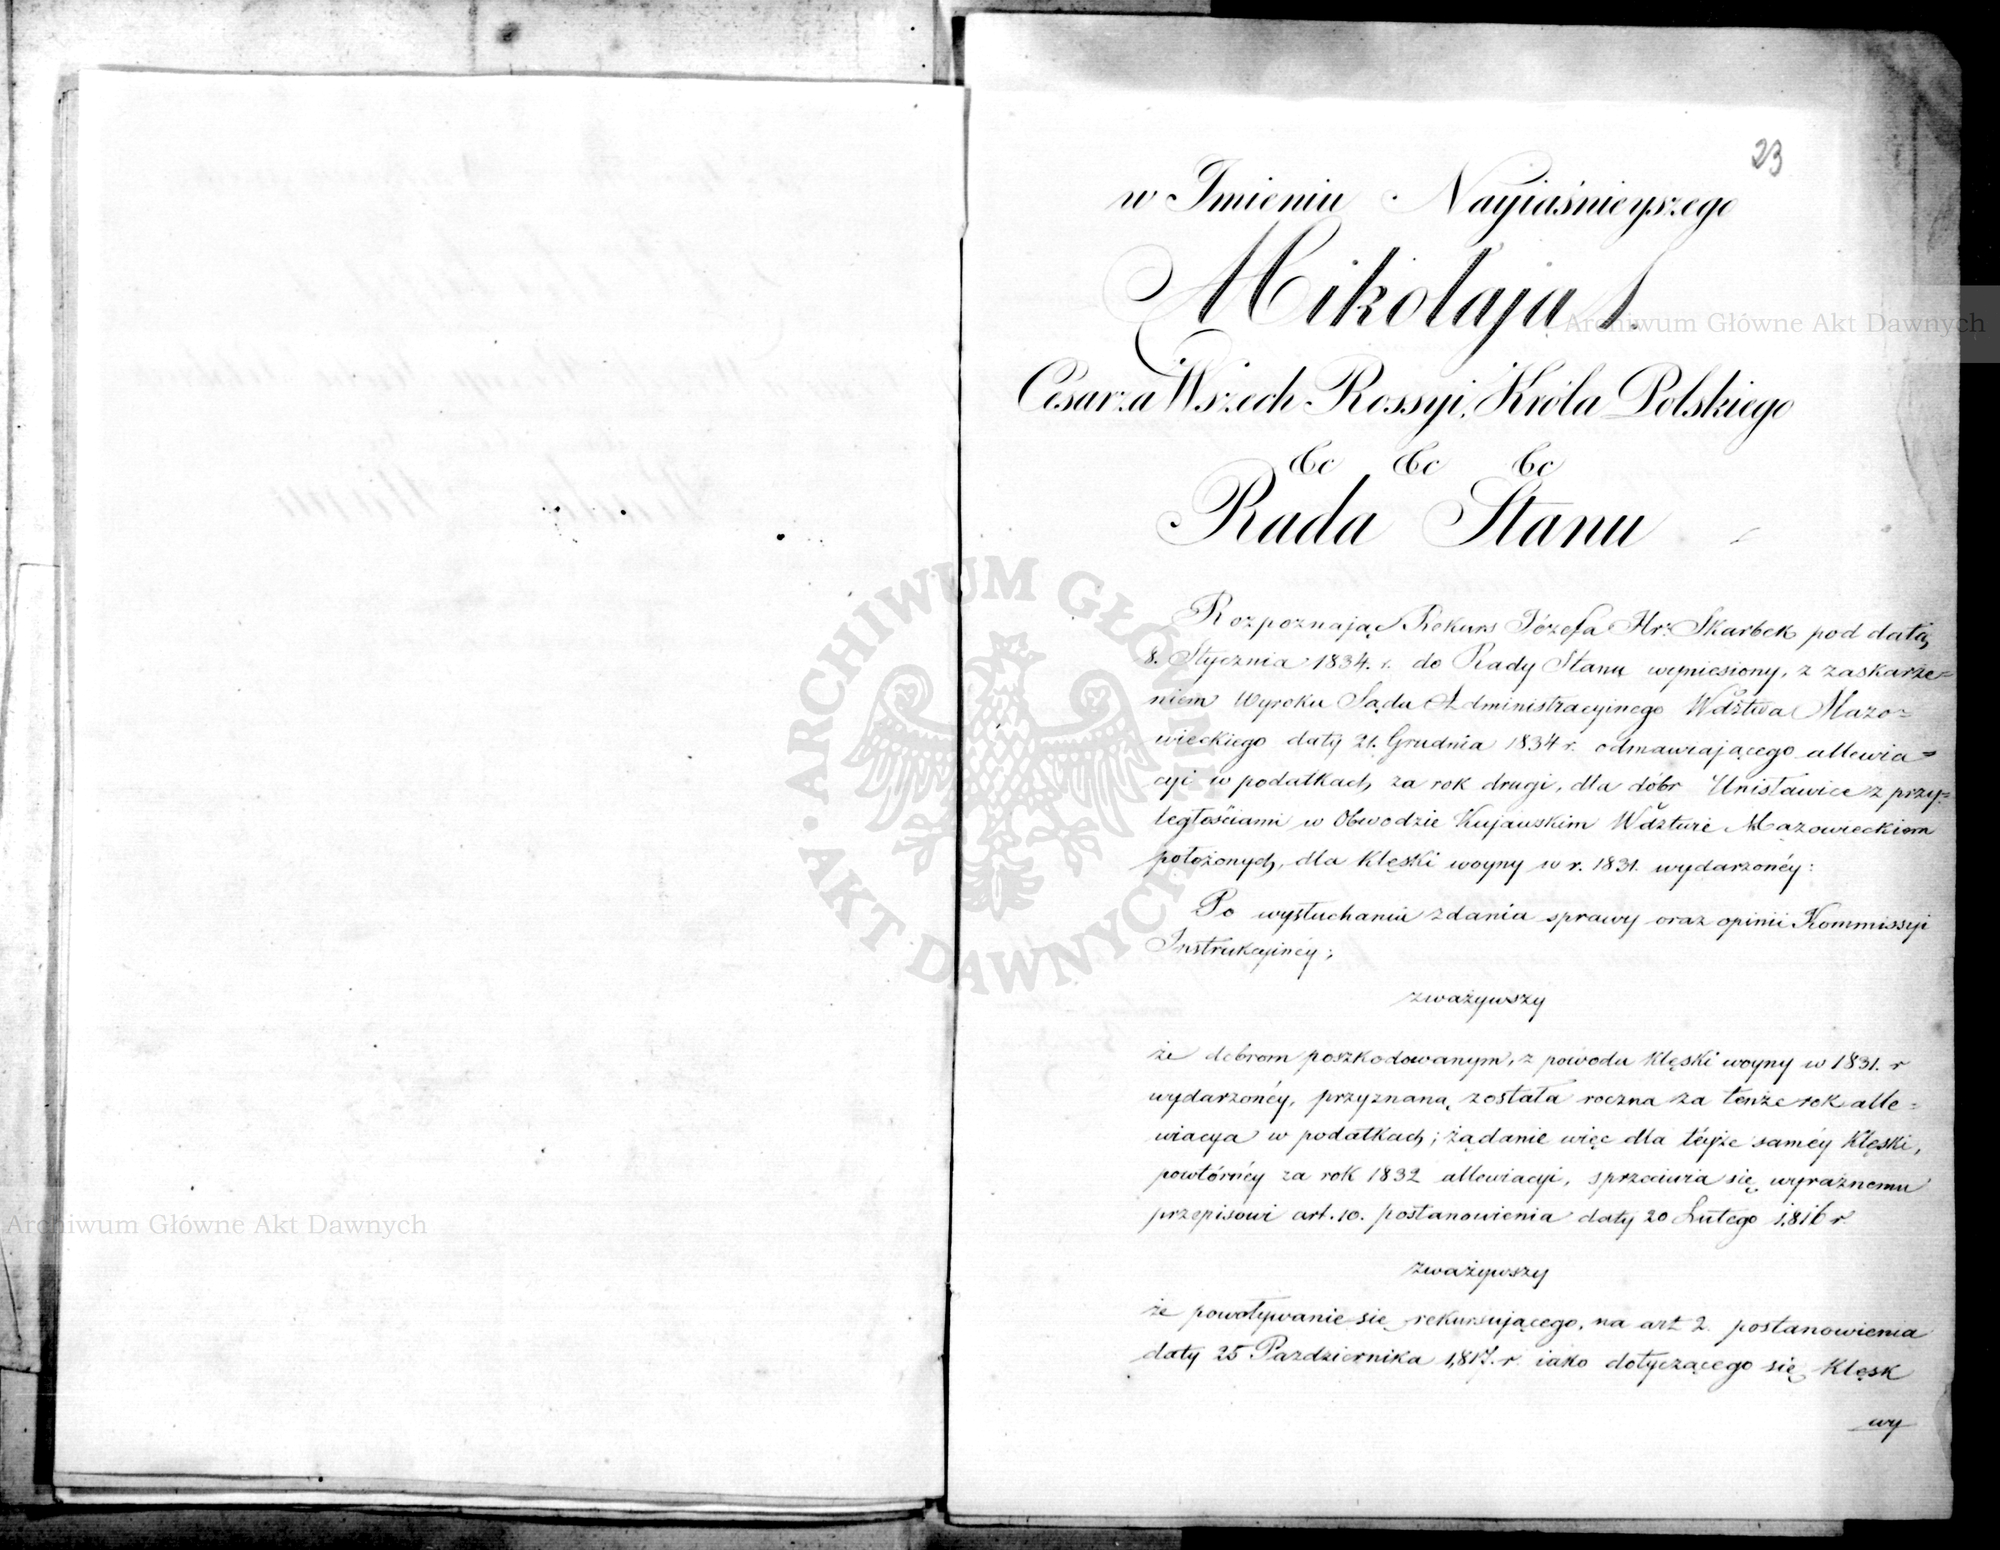 23
w Imieniu Nayiaśnieyszego
Mikołaja I.
Cesarza Wszech Rossyi, Króla Polskiego
&c &c &c
Rada Stanu
Rozpoznając Rekurs Józefa Hr: Skarbek pod datą
8. Stycznia 1834. r. do Rady Stanu wyniesiony, z zaskarże=
niem Wyroku Sądu Administracyinego Wdztwa Mazo=
wieckiego daty 21. Grudnia 1834 r. odmawiającego allewia=
cyi w podatkach, za rok drugi, dla dóbr Unisławice z przy=
ległościami w Obwodzie Kujawskim Wdztwie Mazowieckiem
położonych, dla klęski woyny w r. 1831. wydarzonéy:
Po wysłuchaniu zdania sprawy oraz opinii Kommissyi
Instrukcyinéy;
zważywszy
że dobrom poszkodowanym, z powodu klęski woyny w 1831. r
wydarzonéy, przyznaną została roczna za tenże rok alle=
wiacya w podatkach; żądanie więc dla téyże saméy klęski,
powtórnéy za rok 1832 allewiacyi, sprzeciwia się wyraźnemu
przepisowi art. 10. postanowienia daty 20 Lutego 1816 r.
zważywszy
że powoływanie się rekursującego, na art 2. postanowienia
daty 25 Pazdziernika 1817. r. iako dotyczącego się klęsk
wy
Archiwum Główne Akt Dawnych
Archiwum Główne Akt Dawnych
ARCHIWUM GŁÓWNE · AKT DAWNYCH ·